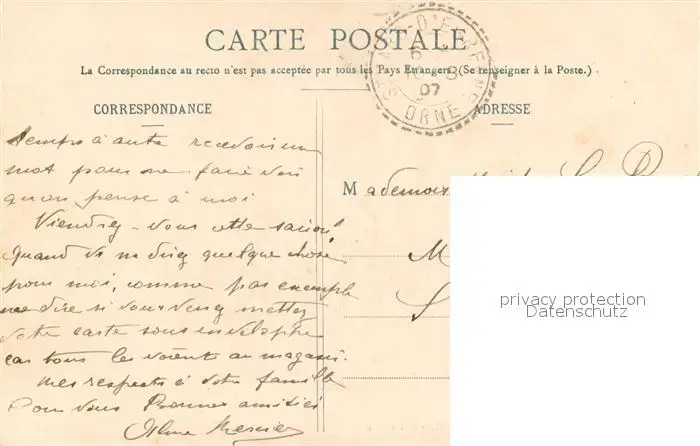 CARTE POSTALE
La Correspondance au recto n'est pas acceptée par tous les Pays Etrangers (Se renseigner à la Poste.)
ST-D'EPERRENNE
6
07
ORNE
CORRESPONDANCE
ADRESSE
temps à autre recevoir un
mot pour me faire voir
qu'on pense à moi
Viendrez-vous cette saison?
Quand vs me direz quelque chose
pour moi, comme par exemple
me dire si vous venez mettez
votre carte sous enveloppe
car tous les voient au magasin.
Mes respects à votre famille
Pour vous Bonnes amitiés
Mercier
Mademois
M
S
privacy protection
Datenschutz